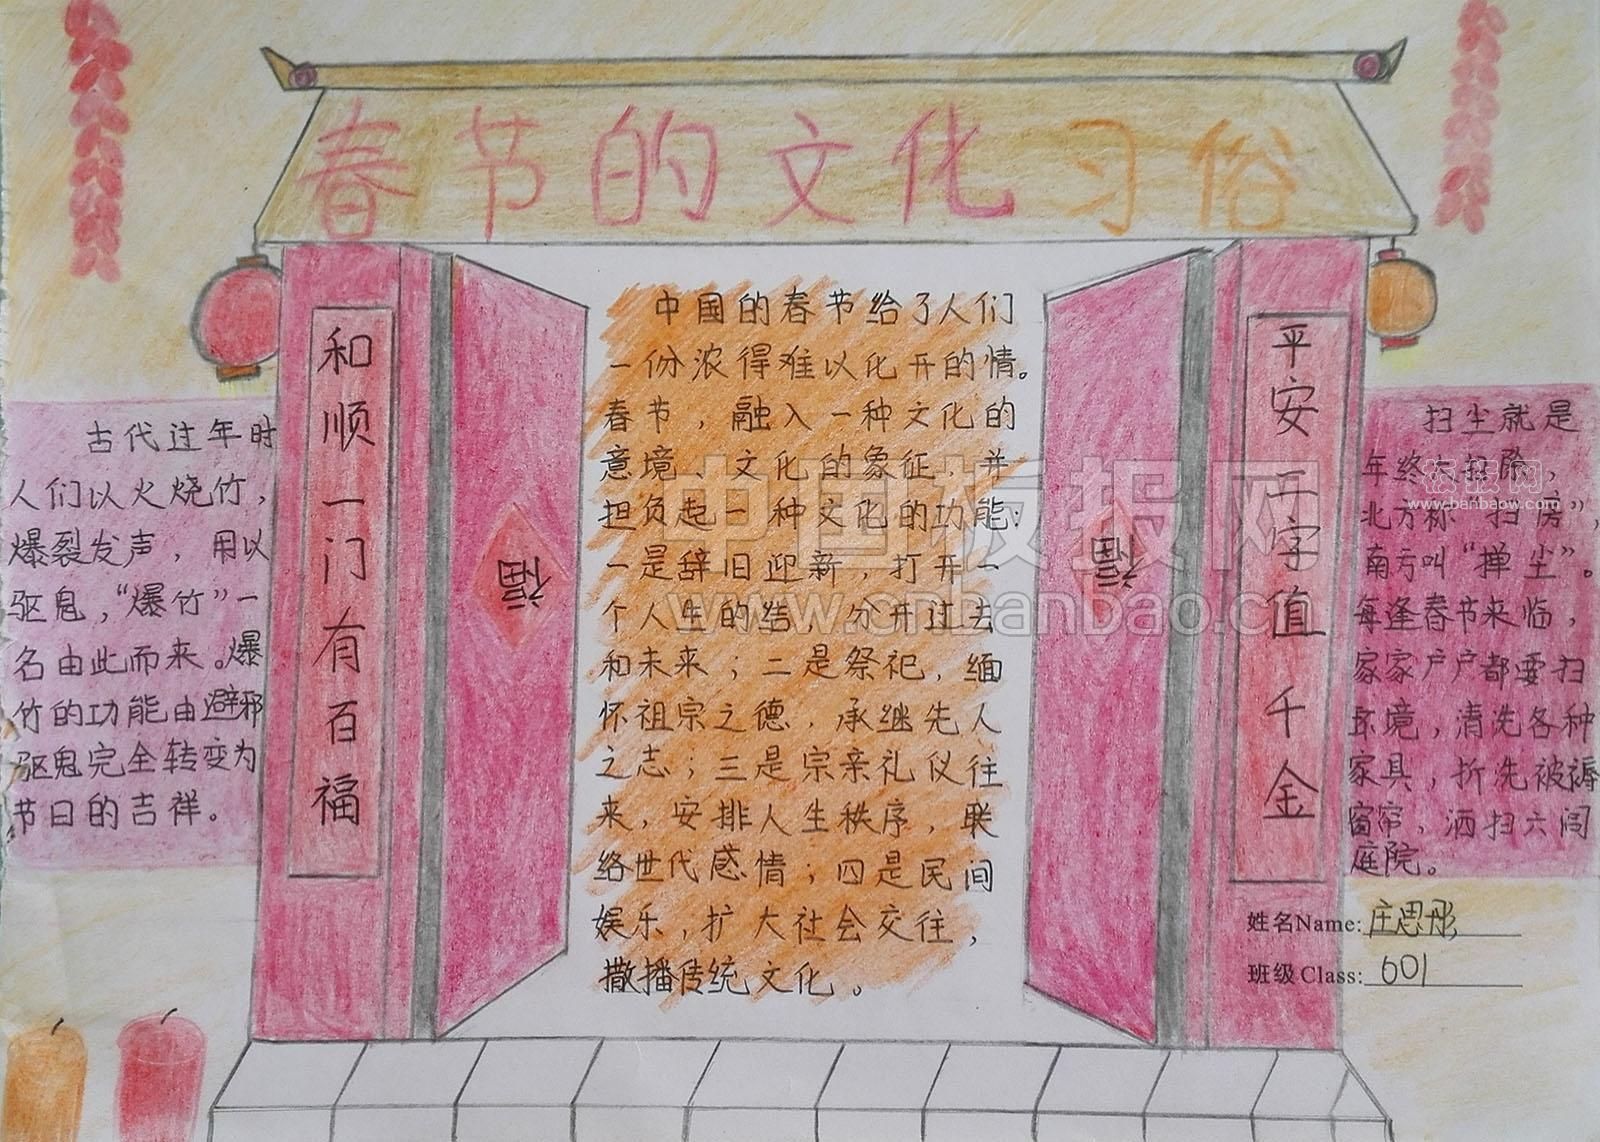 春节的文化习俗
和顺一门有百福
平安二字值千金
福
福
古代过年时
人们以火烧竹，
爆裂发声，用以
驱鬼，“爆竹”一
名由此而来。爆
竹的功能由避邪
驱鬼完全转变为
节日的吉祥。
中国的春节给了人们
一份浓得难以化开的情。
春节，融入一种文化的
意境、文化的象征，并
担负起一种文化的功能：
一是辞旧迎新，打开一
个人生的结，分开过去
和未来；二是祭祀，缅
怀祖宗之德，承继先人
之志；三是宗亲礼仪往
来，安排人生秩序，联
络世代感情；四是民间
娱乐，扩大社会交往，
撒播传统文化。
扫尘就是
年终大扫除，
北方称“扫房”，
南方叫“掸尘”。
每逢春节来临，
家家户户都要扫
环境，清洗各种
家具，折洗被褥
窗帘，洒扫六闾
庭院。
姓名Name: 庄思彤
班级Class: 601
中国板报网
www.cnbanbao.c
板报网
www.banbaow.com